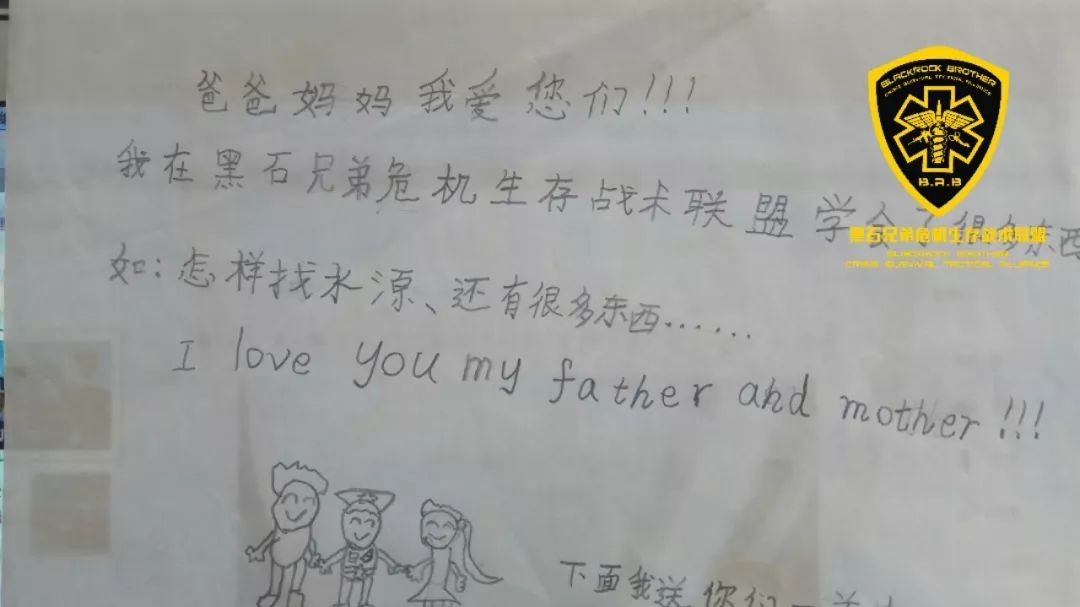 爸爸妈妈我爱您们!!!
我在黑石兄弟危机生存战术联盟学会了很多东西
如:怎样找水源、还有很多东西......
I love you my father and mother!!!
下面我送你们一首
BLACKROCK BROTHER
CRISIS SURVIVAL TACTICAL ALLIANCE
B.R.B
黑石兄弟危机生存战术联盟
BLACKROCK BROTHER
CRISIS SURVIVAL TACTICAL ALLIANCE